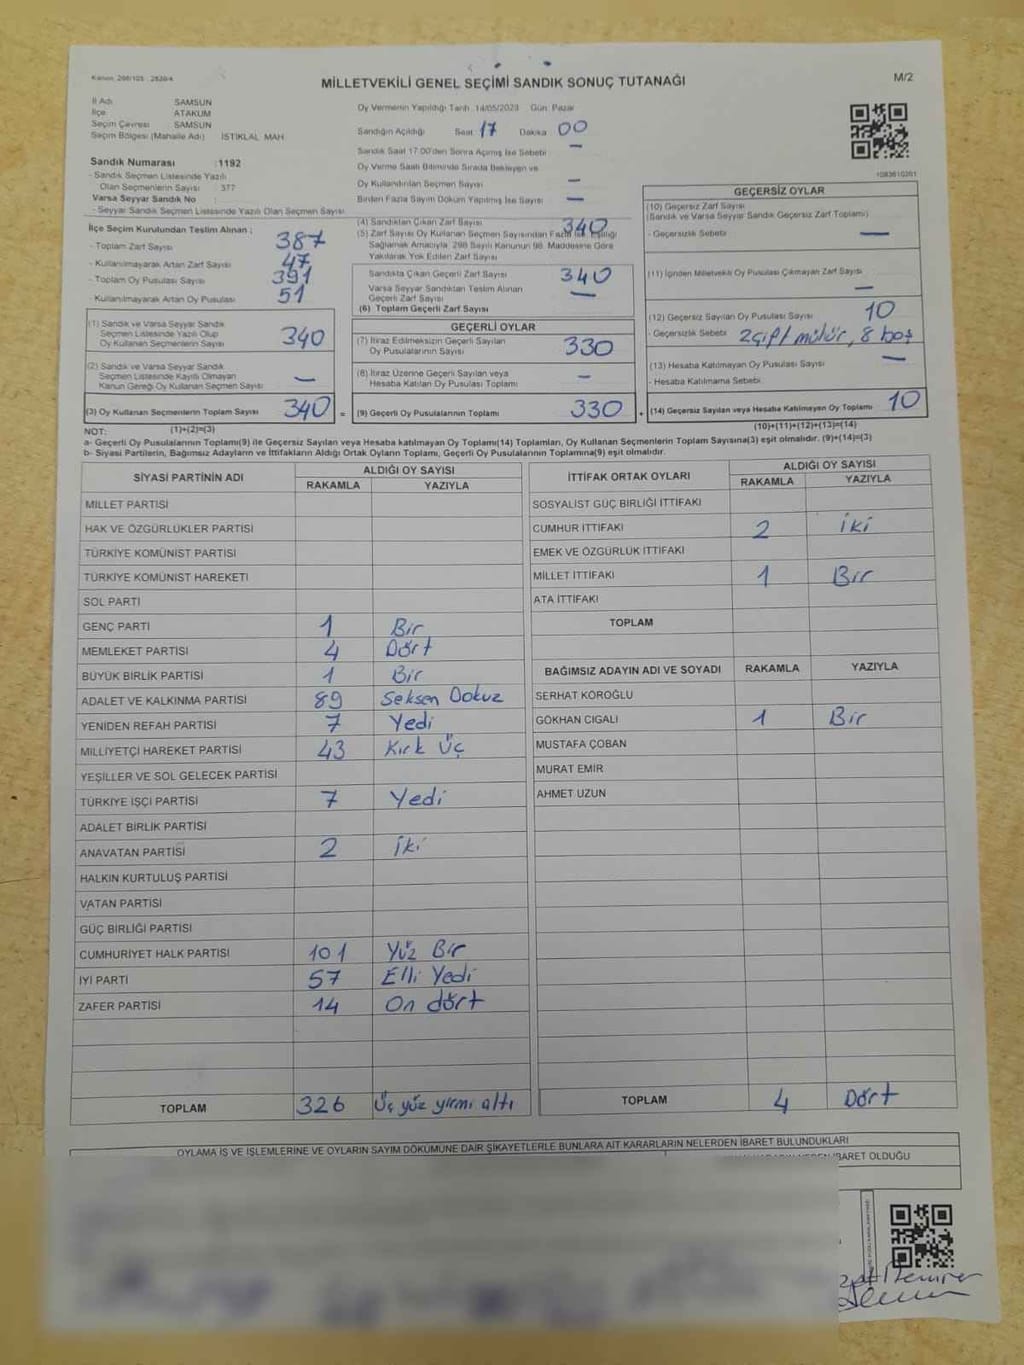 Kanun: 298/105 , 2839/4
MİLLETVEKİLİ GENEL SEÇİMİ SANDIK SONUÇ TUTANAĞI
M/2
İl Adı SAMSUN
İlçe ATAKUM
Seçim Çevresi SAMSUN
Seçim Bölgesi (Mahalle Adı) İSTİKLAL MAH
Oy Vermenin Yapıldığı Tarih 14/05/2023 Gün Pazar
Sandığın Açıldığı Saat 17 Dakika 00
Sandık Saat 17.00'den Sonra Açılmış İse Sebebi —
Oy Verme Saati Bitiminde Sırada Bekleyen ve
Oy Kullandırılan Seçmen Sayısı —
Birden Fazla Sayım Döküm Yapılmış İse Sayısı —
1083610201
Sandık Numarası : 1192
- Sandık Seçmen Listesinde Yazılı
Olan Seçmenlerin Sayısı : 377
Varsa Seyyar Sandık No :
- Seyyar Sandık Seçmen Listesinde Yazılı Olan Seçmen Sayısı
İlçe Seçim Kurulundan Teslim Alınan ;
- Toplam Zarf Sayısı 387
- Kullanılmayarak Artan Zarf Sayısı 47
- Toplam Oy Pusulası Sayısı 391
- Kullanılmayarak Artan Oy Pusulası 51
(1) Sandık ve Varsa Seyyar Sandık
Seçmen Listesinde Yazılı Olup
Oy Kullanan Seçmenlerin Sayısı 340
(2) Sandık ve Varsa Seyyar Sandık
Seçmen Listesinde Kayıtlı Olmayan
Kanun Gereği Oy Kullanan Seçmen Sayısı —
(3) Oy Kullanan Seçmenlerin Toplam Sayısı 340 =
(1)+(2)=(3)
(4) Sandıktan Çıkan Zarf Sayısı 340
(5) Zarf Sayısı Oy Kullanan Seçmen Sayısından Fazla İse, Eşitliği
Sağlamak Amacıyla 298 Sayılı Kanunun 98. Maddesine Göre
Yakılarak Yok Edilen Zarf Sayısı
Sandıkta Çıkan Geçerli Zarf Sayısı 340
Varsa Seyyar Sandıktan Teslim Alınan
Geçerli Zarf Sayısı —
(6) Toplam Geçerli Zarf Sayısı
GEÇERLİ OYLAR
(7) İtiraz Edilmeksizin Geçerli Sayılan
Oy Pusulalarının Sayısı 330
(8) İtiraz Üzerine Geçerli Sayılan veya
Hesaba Katılan Oy Pusulası Toplamı —
(9) Geçerli Oy Pusulalarının Toplamı 330 +
GEÇERSİZ OYLAR
(10) Geçersiz Zarf Sayısı
(Sandık ve Varsa Seyyar Sandık Geçersiz Zarf Toplamı)
- Geçersizlik Sebebi —
(11) İçinden Milletvekili Oy Pusulası Çıkmayan Zarf Sayısı —
(12) Geçersiz Sayılan Oy Pusulası Sayısı 10
- Geçersizlik Sebebi 2 çift mühür, 8 boş
(13) Hesaba Katılmayan Oy Pusulası Sayısı —
- Hesaba Katılmama Sebebi
(14) Geçersiz Sayılan veya Hesaba Katılmayan Oy Toplamı 10
(10)+(11)+(12)+(13)=(14)
NOT:
a- Geçerli Oy Pusulalarının Toplamı(9) ile Geçersiz Sayılan veya Hesaba katılmayan Oy Toplamı(14) Toplamları, Oy Kullanan Seçmenlerin Toplam Sayısına(3) eşit olmalıdır. (9)+(14)=(3)
b- Siyasi Partilerin, Bağımsız Adayların ve İttifakların Aldığı Ortak Oyların Toplamı, Geçerli Oy Pusulalarının Toplamına(9) eşit olmalıdır.
SİYASİ PARTİNİN ADI ALDIĞI OY SAYISI
RAKAMLA YAZIYLA
MİLLET PARTİSİ
HAK VE ÖZGÜRLÜKLER PARTİSİ
TÜRKİYE KOMÜNİST PARTİSİ
TÜRKİYE KOMÜNİST HAREKETİ
SOL PARTİ
GENÇ PARTİ 1 Bir
MEMLEKET PARTİSİ 4 Dört
BÜYÜK BİRLİK PARTİSİ 1 Bir
ADALET VE KALKINMA PARTİSİ 89 Seksen Dokuz
YENİDEN REFAH PARTİSİ 7 Yedi
MİLLİYETÇİ HAREKET PARTİSİ 43 Kırk Üç
YEŞİLLER VE SOL GELECEK PARTİSİ
TÜRKİYE İŞÇİ PARTİSİ 7 Yedi
ADALET BİRLİK PARTİSİ
ANAVATAN PARTİSİ 2 İki
HALKIN KURTULUŞ PARTİSİ
VATAN PARTİSİ
GÜÇ BİRLİĞİ PARTİSİ
CUMHURİYET HALK PARTİSİ 101 Yüz Bir
İYİ PARTİ 57 Elli Yedi
ZAFER PARTİSİ 14 On dört
TOPLAM 326 Üç yüz yirmi altı
İTTİFAK ORTAK OYLARI ALDIĞI OY SAYISI
RAKAMLA YAZIYLA
SOSYALİST GÜÇ BİRLİĞİ İTTİFAKI
CUMHUR İTTİFAKI 2 İki
EMEK VE ÖZGÜRLÜK İTTİFAKI
MİLLET İTTİFAKI 1 Bir
ATA İTTİFAKI
TOPLAM
BAĞIMSIZ ADAYIN ADI VE SOYADI RAKAMLA YAZIYLA
SERHAT KÖROĞLU
GÖKHAN CIGALI 1 Bir
MUSTAFA ÇOBAN
MURAT EMİR
AHMET UZUN
TOPLAM 4 Dört
OYLAMA İŞ VE İŞLEMLERİNE VE OYLARIN SAYIM DÖKÜMÜNE DAİR ŞİKAYETLERLE BUNLARA AİT KARARLARIN NELERDEN İBARET BULUNDUKLARI
İBARET OLDUĞU